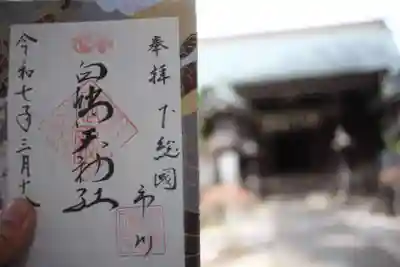 奉拝 下総國 市川
白幡天神社
令和七年三月十九